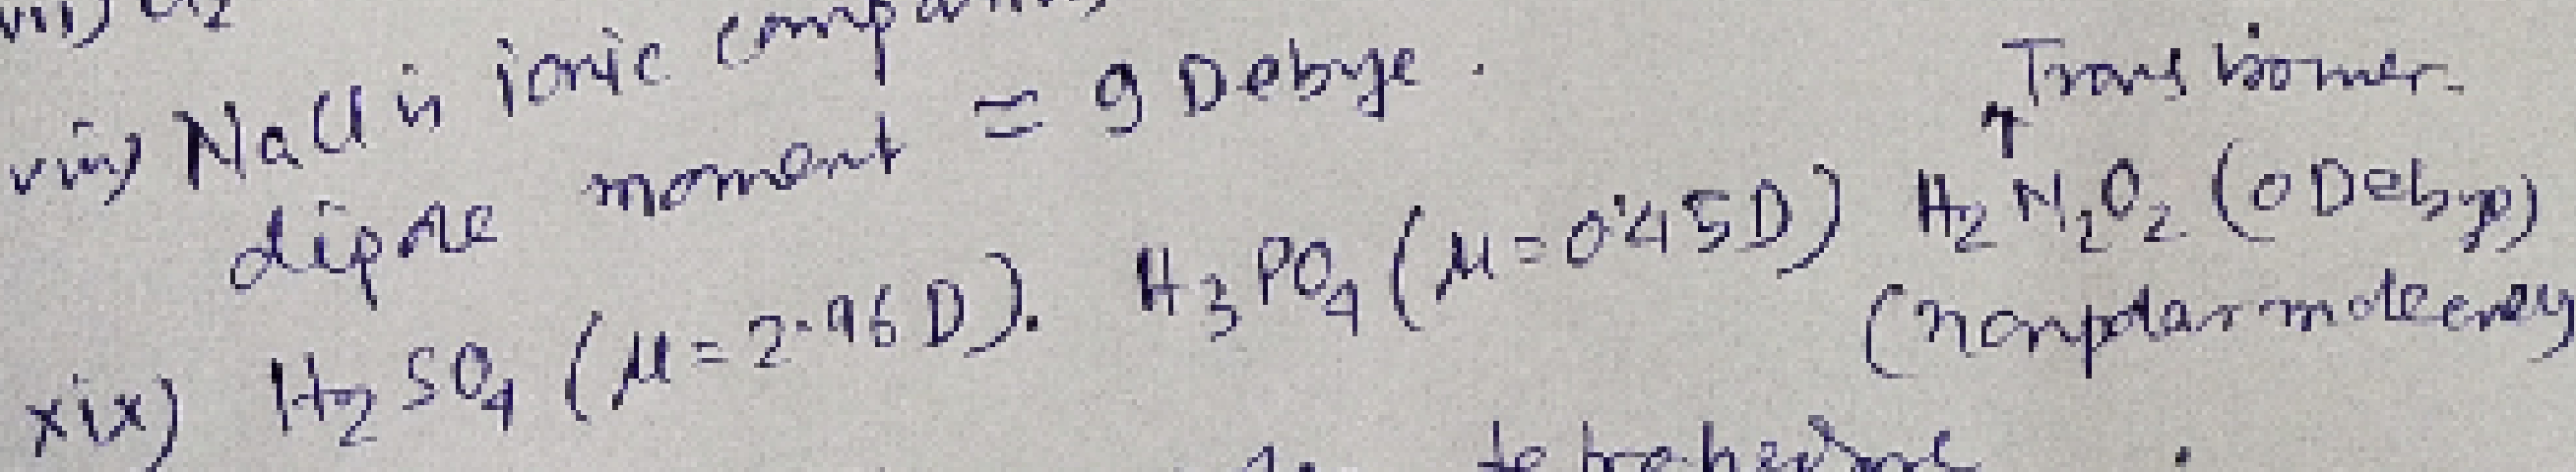 viii) NaCl is ionic
dipole moment = 9 Debye.
Trans isomer.
↑
xix) H2SO4 (μ=2.96D). H3PO4 (μ=0.45D) H2N2O2 (0 Debye)
(nonpolar
tetrahedral